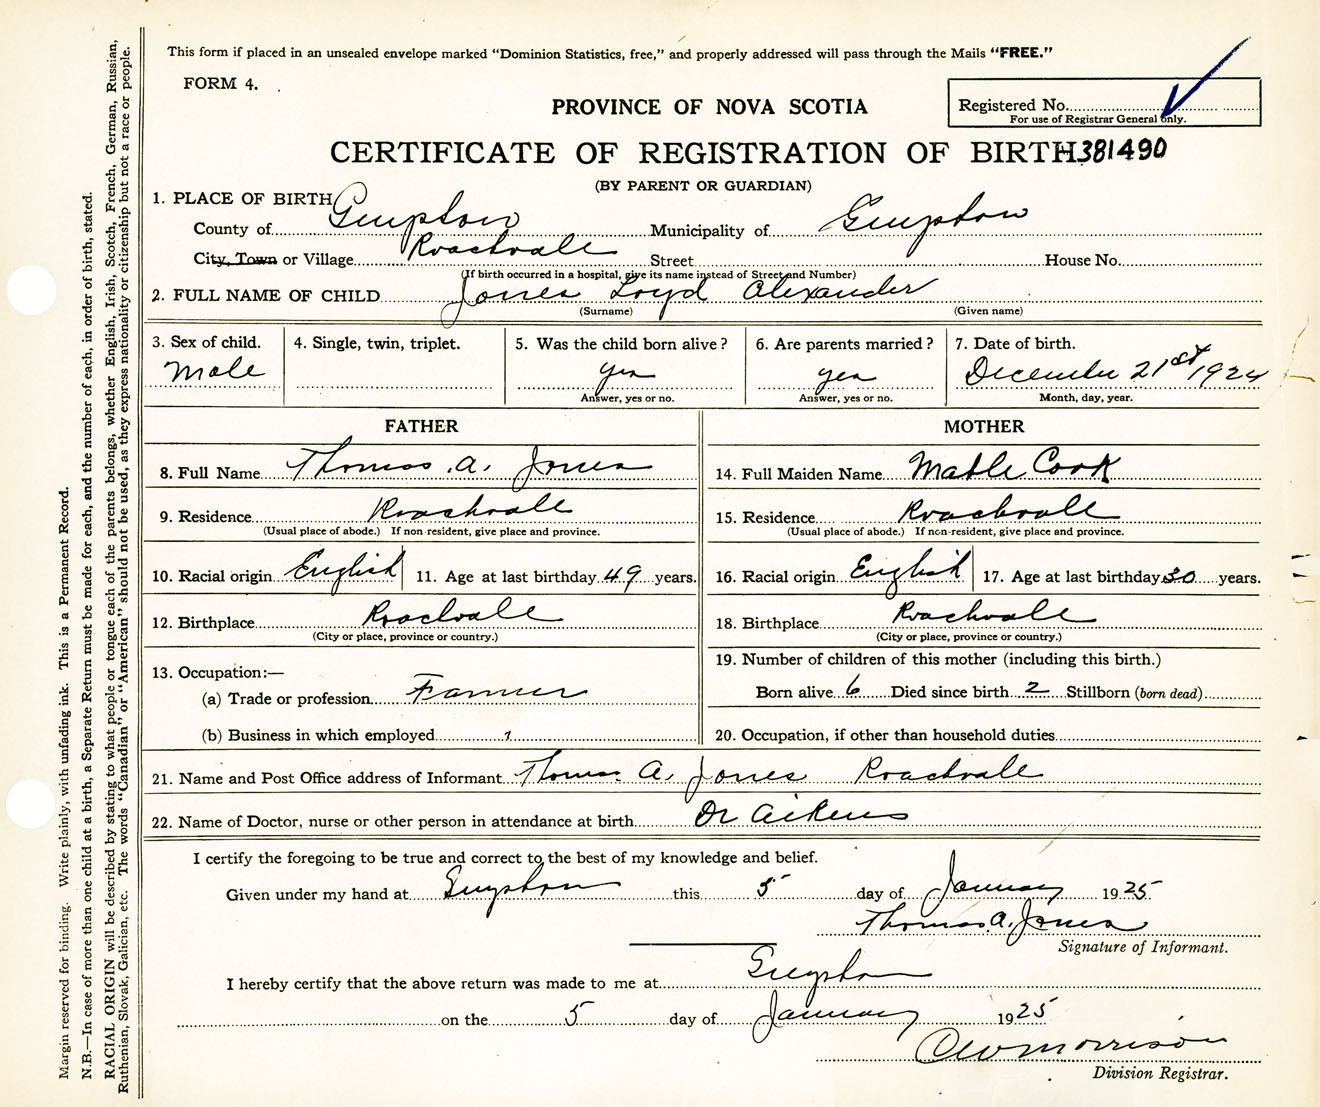 This form if placed in an unsealed envelope marked "Dominion Statistics, free," and properly addressed will pass through the Mails "FREE."
FORM 4.
PROVINCE OF NOVA SCOTIA
Registered No.
For use of Registrar General only.
CERTIFICATE OF REGISTRATION OF BIRTH 381490
(BY PARENT OR GUARDIAN)
1. PLACE OF BIRTH
County of Guysboro Municipality of Guysboro
City, Town or Village Roachvale Street House No.
(If birth occurred in a hospital, give its name instead of Street and Number)
2. FULL NAME OF CHILD Jones Loyd Alexander
(Surname) (Given name)
3. Sex of child. 4. Single, twin, triplet. 5. Was the child born alive? 6. Are parents married? 7. Date of birth.
Male yes yes December 21st 1924
Answer, yes or no. Answer, yes or no. Month, day, year.
FATHER MOTHER
8. Full Name Thomas. A. Jones 14. Full Maiden Name Mable Cook
9. Residence Roachvale 15. Residence Roachvale
(Usual place of abode.) If non-resident, give place and province. (Usual place of abode.) If non-resident, give place and province.
10. Racial origin English 11. Age at last birthday 49 years. 16. Racial origin English 17. Age at last birthday 30 years.
12. Birthplace Roachvale 18. Birthplace Roachvale
(City or place, province or country.) (City or place, province or country.)
13. Occupation:— 19. Number of children of this mother (including this birth.)
(a) Trade or profession Farmer Born alive 6 Died since birth 2 Stillborn (born dead)
(b) Business in which employed 20. Occupation, if other than household duties
21. Name and Post Office address of Informant Thomas A. Jones Roachvale
22. Name of Doctor, nurse or other person in attendance at birth Dr Aikens
I certify the foregoing to be true and correct to the best of my knowledge and belief.
Given under my hand at Guysboro this 5 day of January 1925
Thomas. A. Jones
Signature of Informant.
I hereby certify that the above return was made to me at Guysboro
on the 5 day of January 1925
C W Morrison
Division Registrar.
Margin reserved for binding. Write plainly, with unfading ink. This is a Permanent Record.
N.B.—In case of more than one child at a birth, a Separate Return must be made for each, and the number of each, in order of birth, stated.
RACIAL ORIGIN will be described by stating to what people or tongue each of the parents belongs, whether English, Irish, Scotch, French, German, Russian,
Ruthenian, Slovak, Galician, etc. The words "Canadian" or "American" should not be used, as they express nationality or citizenship but not a race or people.